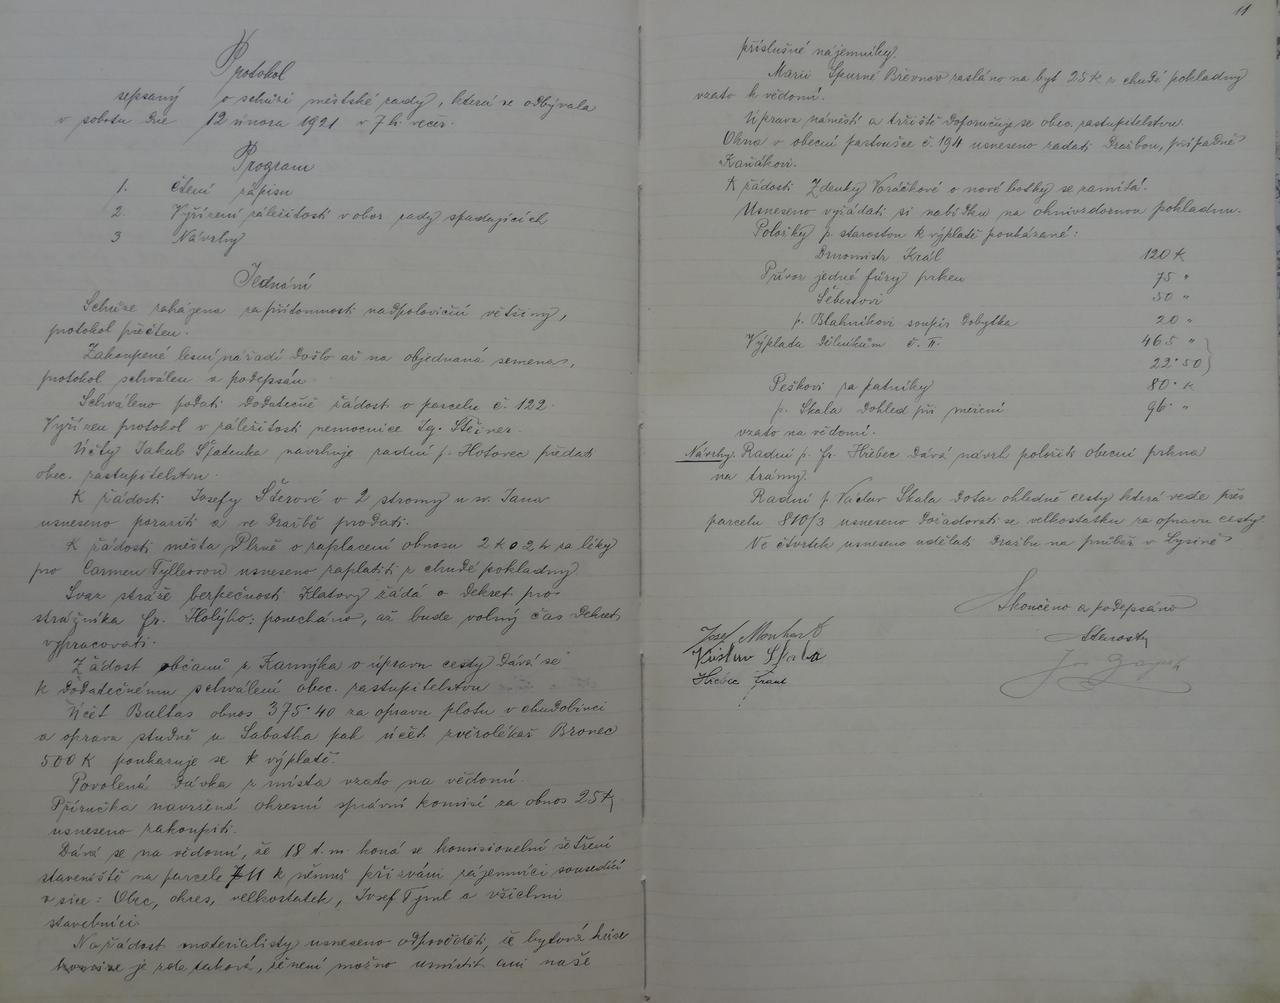 Protokol
sepsaný o schůzi městské rady, která se odbývala
v sobotu dne 12 února 1921 v 7 h. večer.
Program
1. čtení zápisu
2. Vyřízení záležitostí v obor rady spadajících
3 Návrhy
Jednání
Schůze zahájena za přítomnosti nadpoloviční většiny,
protokol přečten.
Zakoupené lesní nářadí došlo až na objednaná semena,
protokol schválen a podepsán.
Schváleno podati dodatečně žádost o parcelu č. 122.
Vyřízen protokol v záležitosti nemocnice Ig. Steiner.
Účty Jakub navrhuje radní p. Hotovec předati
obec. zastupitelstvu.
K žádosti Josefy Šterové o 2 stromy u sv. Jana
usneseno poraziti a ve dražbě prodati.
K žádosti města Plzně o zaplacení obnosu 2 K 02 h za léky
pro Carmen usneseno zaplatiti z chudé pokladny.
Svaz stráže bezpečnosti Klatovy žádá o dekret pro
strážníka Fr. Holýho: ponecháno, až bude volný čas dekret
vypracovati.
Žádost občanů z Kamýka o úpravu cesty dává se
k dodatečnému schválení obec. zastupitelstvu
Účet Bultas obnos 375·40 za opravu plotu v chudobinci
a oprava studně u Sabatka pak účet zvěrolékař Bronec
500 K poukazuje se k výplatě.
Povolená dávka z místa vzato na vědomí.
Příručka navržená okresní správní komisí za obnos 25 K
usneseno zakoupiti.
Dává se na vědomí, že 18 t. m. koná se komisionelní šetření
staveniště na parcele 711 k němuž přizváni zájemníci sousedící
a sice: Obec, okres, velkostatek, Josef Tyml a všichni
stavebníci
Na žádost materialisty usneseno odpověděti, že bytová krise
je zde taková, že není možno umístit ani naše
11
příslušné nájemníky.
Marii Spurné Břevnov zasláno na byt 25 K z chudé pokladny
vzato k vědomí.
Úprava náměstí a tržiště doporučuje se obec. zastupitelstvu.
Okna v obecní pastoušce č. 194 usneseno zadati dražbou, případně
Kaňákovi.
K žádosti Zdenky Voráčkové o nové botky se zamítá.
Usneseno vyžádati si nabídku na ohnivzdornou pokladnu.
Položky p. starostou k výplatě poukázané:
Drnomistr Král 120 K
Přívoz jedné fůry prken 75 "
Šebestovi 50 "
p. Blahníkovi soupis dobytka 20 "
Výplata dělníkům č. II 465 "
22·50
Peškovi za patníky 80· K
p. Skala dohled při měření 96· "
vzato na vědomí.
Návrhy. Radní p. Fr. Hřebec dává návrh položiti obecní prkna
na trámy.
Radní p. Václav Skala dotaz ohledně cesty která vede přes
parcelu 810/3 usneseno dožádovati se velkostatku za opravu cesty.
Ve čtvrtek usneseno udělati dražbu na průběž v Lysině
Skončeno a podepsáno
Josef Monhart Starosta
Václav Skala
Hřebec Frant